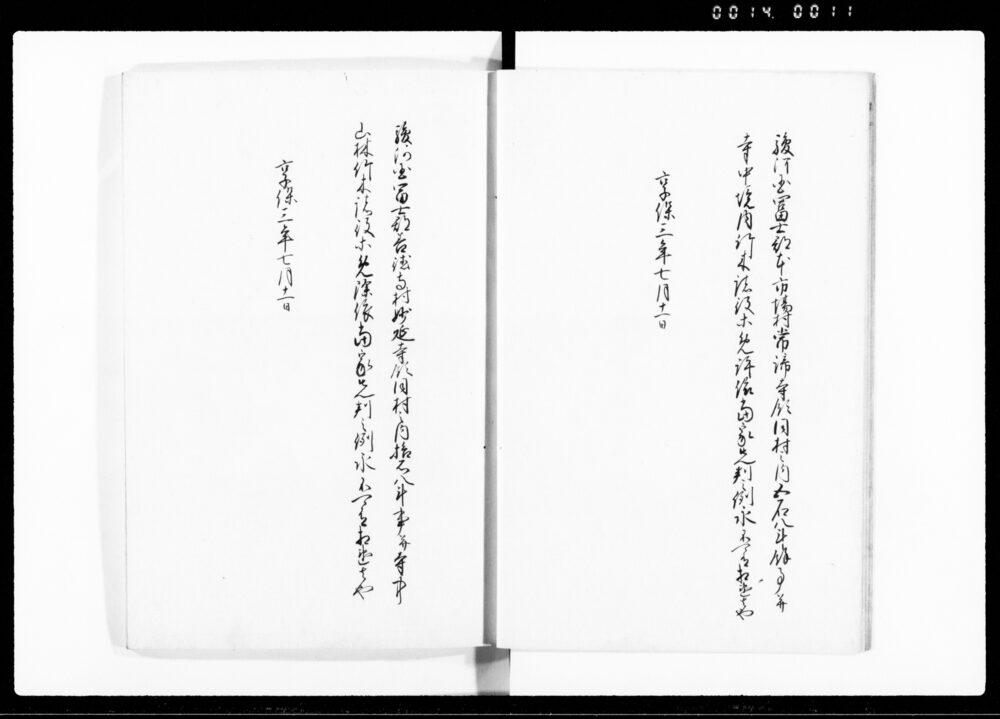 0014 0011
駿河国冨士郡本市場村常諦寺領同村之内五石八斗余事并
寺中境内竹木諸役等免許依当家先判之例永不可有相違者也
享保三年七月十一日
駿河国冨士郡善徳寺村妙延寺領同村之内拾石八斗事并寺中
山林竹木諸役等免除依当家先判之例永不可有相違者也
享保三年七月十一日